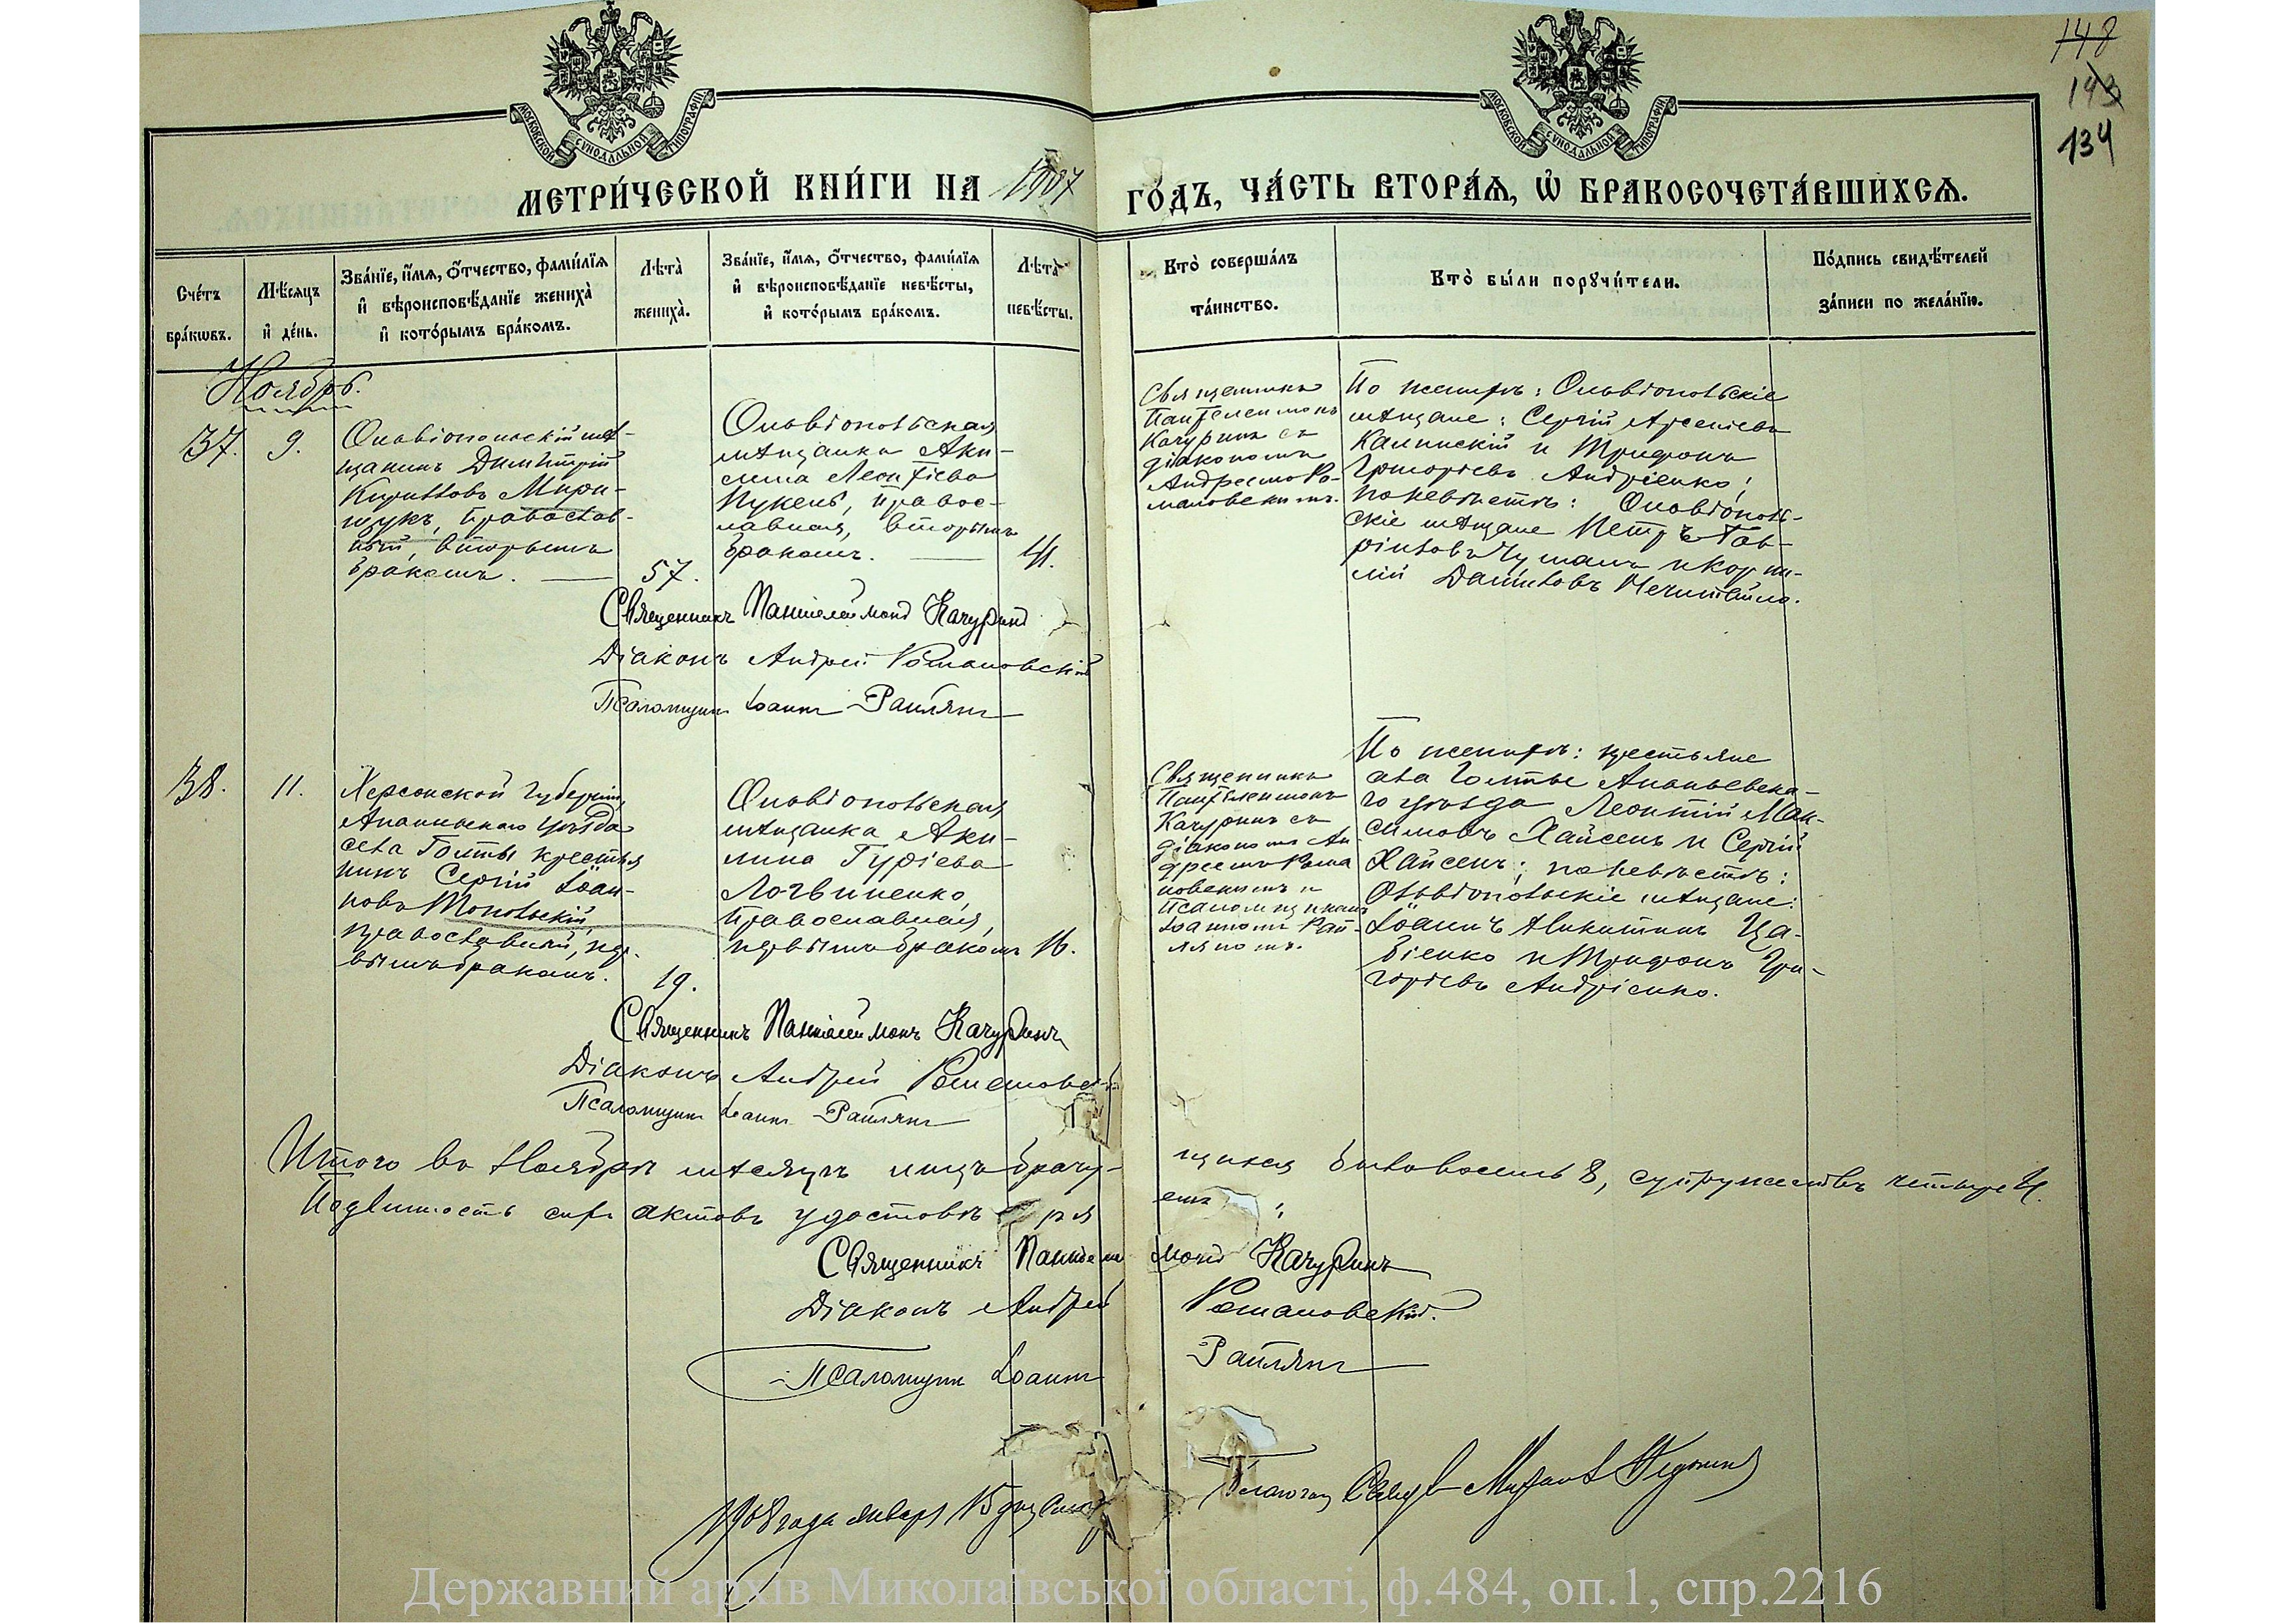 148
143
134
МОСКОВСКОЙ СѴНОДАЛЬНОЙ ТИПОГРАФІИ
МОСКОВСКОЙ СѴНОДАЛЬНОЙ ТИПОГРАФІИ
МЕТРИ́ЧЕСКОЙ КНИ́ГИ НА 1907 ГО́ДЪ, ЧА́СТЬ ВТОРА́Ѧ, Ѽ БРАКОСОЧЕТА́ВШИХСѦ.
Сче́тъ
бра́кѡвъ.
Мѣ́сѧцъ
и҆ де́нь.
Зва́нїе, и҆́мѧ, ѻ҆́тчество, фами́лїѧ
и҆ вѣроисповѣ́данїе жениха̀
и҆ кото́рымъ бра́комъ.
Лѣта̀
жениха̀.
Зва́нїе, и҆́мѧ, ѻ҆́тчество, фами́лїѧ
и҆ вѣроисповѣ́данїе невѣ́сты,
и҆ кото́рымъ бра́комъ.
Лѣта̀
невѣ́сты.
Кто̀ соверша́лъ
та́инство.
Кто̀ бы́ли порꙋчи́тели.
По́дпись свидѣ́телей
за́писи по жела́нїю.
Ноябрь.
37.
9.
Ольвіопольскій мѣ-
щанинъ Димитрій
Кирилловъ Мири-
щукъ, православ-
ный, вторымъ
бракомъ.
57.
Ольвіопольская
мѣщанка Аки-
лина Леонтіева
Пукенъ, правос-
лавная, вторымъ
бракомъ.
41.
Священникъ
Пантелеимонъ
Качуринъ съ
діакономъ
Андреемъ Ро-
мановскимъ.
По женихѣ: Ольвіопольскіе
мѣщане: Сергій Арсеніевъ
Калинскій и Трифонъ
Григорьевъ Андріенко;
по невѣстѣ: Ольвіополь-
скіе мѣщане Петръ Гав-
ріиловъ Чумакъ и Корни-
лій Даниловъ Нечитайло.
Священникъ Пантелеймонъ Качуринъ
Діаконъ Андрей Романовскій
Псаломщикъ Іоаннъ Раилянъ
38.
11.
Херсонской губерніи,
Ананьевскаго уѣзда
села Голты крестья
нинъ Сергій Іоан-
новъ Топольскій,
православный, пер-
вымъ бракомъ.
19.
Ольвіопольская
мѣщанка Аки-
лина Гуріева
Логвиненко,
православная,
первымъ бракомъ
16.
Священникъ
Пантелеимонъ
Качуринъ съ
діакономъ Ан
дреемъ Рома
новскимъ и
Псаломщикомъ
Іоанномъ Раи-
ляномъ.
По женихѣ: крестьяне
села Голты Ананьевска-
го уѣзда Леонтій Мак-
симовъ Хайсенъ и Сергій
Хайсенъ; по невѣстѣ:
Ольвіопольскіе мѣщане:
Іоаннъ Никитинъ Ца-
біенко и Трифонъ Гри-
горіевъ Андріенко.
Священникъ Пантелеймонъ Качуринъ
Діаконъ Андрей Романовскій
Псаломщикъ Іоаннъ Раилянъ
Итого въ Ноябрѣ мѣсяцѣ лицъ брачу-щихся было восемь 8, супружествъ четыре 4.
Подлинность сихъ актовъ удостовѣряемъ:
Священникъ Пантелеймонъ Качуринъ
Діаконъ Андрей Романовскій.
Псаломщикъ Іоаннъ Раилянъ
1908 года января 15 дня
Благочин Свящ Михаилъ
Державний архів Миколаївської області, ф.484, оп.1, спр.2216